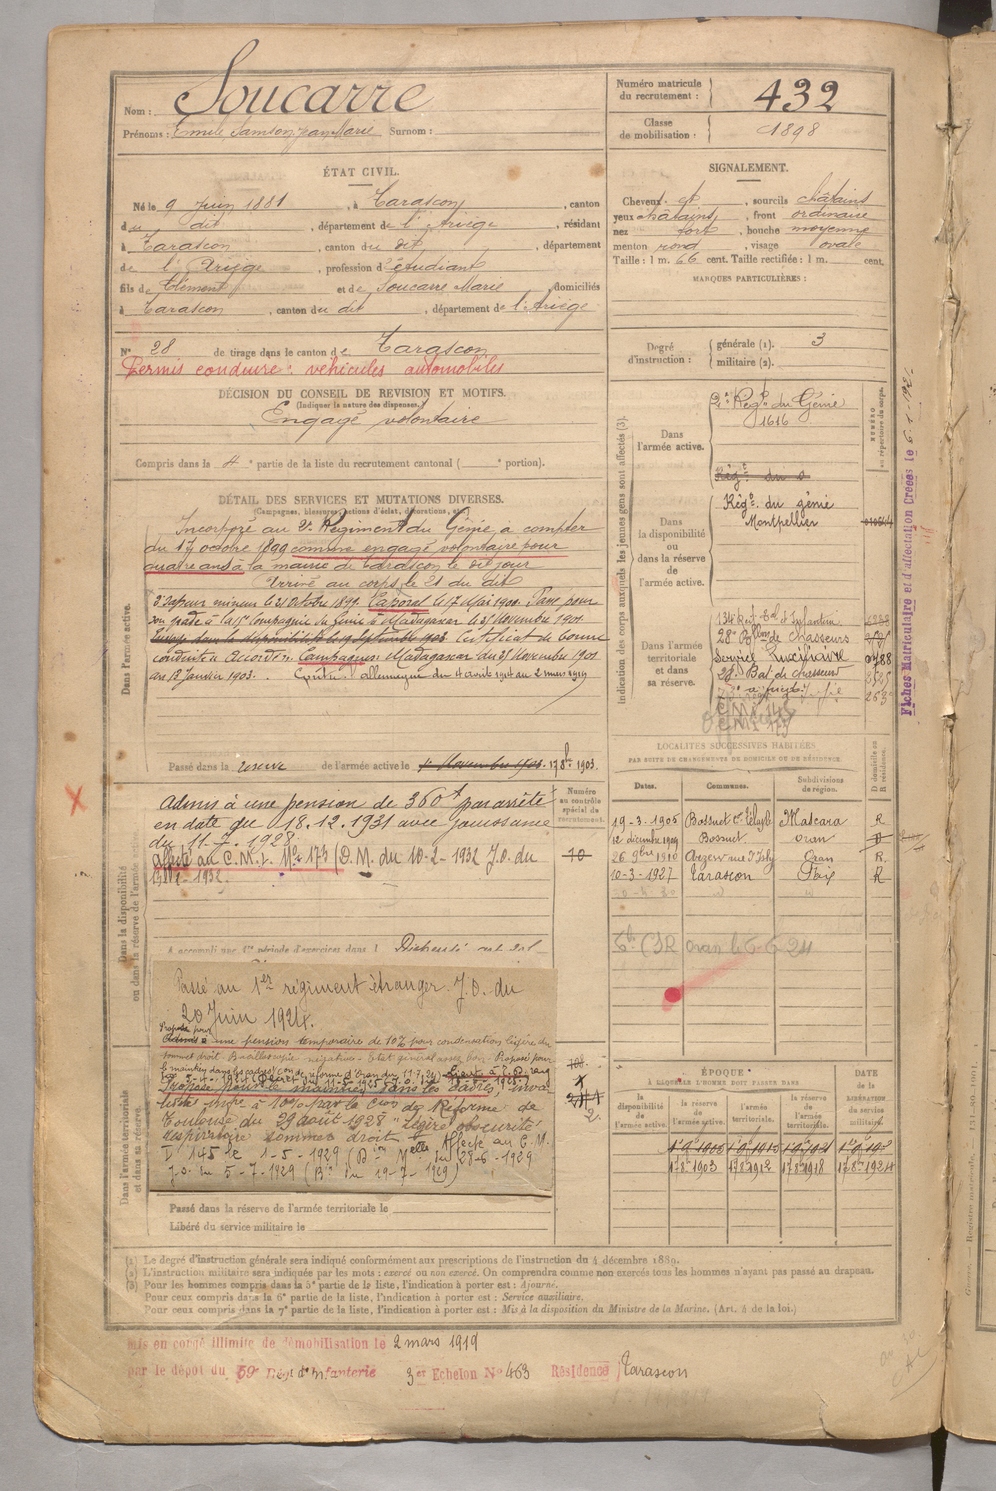 Nom : Soucarre
Prénoms : Emile Samson Jean Marie Surnom :
Numéro matricule du recrutement : 432
Classe de mobilisation : 1898
ÉTAT CIVIL.
Né le 9 Juin 1881, à Tarascon, canton
du dit, département de l'Ariège, résidant
à Tarascon, canton du dit, département
de l'Ariège, profession d'étudiant
fils de Clément et de Soucarre Marie, domiciliés
à Tarascon, canton du dit, département de l'Ariège
SIGNALEMENT.
Cheveux et, sourcils châtains
yeux châtains, front ordinaire
nez fort, bouche moyenne
menton rond, visage ovale
Taille : 1 m. 66 cent. Taille rectifiée : 1 m. cent.
MARQUES PARTICULIÈRES :
N° 28 de tirage dans le canton de Tarascon
Permis conduire : véhicules automobiles
Degré d'instruction : générale (1). 3
militaire (2).
DÉCISION DU CONSEIL DE REVISION ET MOTIFS.
(Indiquer la nature des dispenses.)
Engagé volontaire
Compris dans la 4e partie de la liste du recrutement cantonal ( e portion).
DÉTAIL DES SERVICES ET MUTATIONS DIVERSES.
(Campagnes, blessures, actions d'éclat, décorations, etc.)
Incorporé au 2e Régiment du Génie à compter
du 17 octobre 1899 comme engagé volontaire pour
quatre ans à la mairie de Tarascon le dit jour
Arrivé au corps le 21 du dit
Sapeur mineur le 21 Octobre 1899. Caporal le 17 Mai 1900. Passé pour
son grade à la Compagnie du Génie à Madagascar le 25 Novembre 1901
Envoyé dans la disponibilité le 19 Septembre 1903. Certificat de bonne
conduite Accordé. Campagnes Madagascar du 25 Novembre 1901
au 12 janvier 1903. Contre l'allemagne du 4 août 1914 au 2 mars 1919
Dans l'armée active.
Passé dans la réserve de l'armée active le 1er Novembre 1903. 17 8bre 1903.
Indication des corps auxquels les jeunes gens sont affectés (3).
NUMÉRO au répertoire du corps.
Dans l'armée active.
2e Régt du Génie
1616
Dans la disponibilité ou dans la réserve de l'armée active.
Régt du génie
Montpellier
Dans l'armée territoriale et dans sa réserve.
134e Rgt Tal d'Infanterie
28e Bllon de Chasseurs
Service Auxiliaire 0788
28e Bat de chasseurs
Fiches Matriculaire et d'affectation Créées le 6.1.192
LOCALITÉS SUCCESSIVES HABITÉES
PAR SUITE DE CHANGEMENTS DE DOMICILE OU DE RÉSIDENCE
Dates. Communes. Subdivisions de région. D domicile ou R résidence.
19-3-1905 Bossuet Cne Télagh Mascara R
12 décembre 1909 Bossuet Oran D
26 9bre 1910 Arzew rue d'Isly Oran R.
10-3-1927 Tarascon Foix R
Numéro au contrôle spécial du recrutement.
10
Admis à une pension de 360f par arrêté
en date du 18.12.1931 avec jouissance
du 11-7-1928
Affecté au C.M.I. N° 173 (D.M. du 10-2-1932 J.O. du
-1932.
Dans la disponibilité ou dans la réserve de l'armée active
A accompli une 1re période d'exercices dans l
Passé au 1er régiment étranger. J.O. du
20 Juin 1924.
Proposé pour
Admis à une pension temporaire de 10% pour condensation légère du
sommet droit. Bacilloscopie négative. Etat général assez bon. Proposé pour
le maintien dans les cadres
Proposé pour le maintien dans les cadres, inva-
lidité infre à 10% par la Cion de Réforme de
Toulouse du 29 août 1928 "Légère obscurité
respiratoire sommet droit". Affecté au C.M.
I 145 le 1-5-1929 (Don Melle du 28-6-1929
J.O. du 5-7-1929 (Bin du 19-7-1929)
Dans l'armée territoriale et dans sa réserve.
ÉPOQUE
À LAQUELLE L'HOMME DOIT PASSER DANS
la disponibilité de l'armée active. la réserve de l'armée active. l'armée territoriale. la réserve de l'armée territoriale. DATE de la LIBÉRATION du service militaire.
17 8bre 1903 17 8bre 1912 17 8bre 1918 17 8bre 1924
Passé dans la réserve de l'armée territoriale le
Libéré du service militaire le
(1) Le degré d'instruction générale sera indiqué conformément aux prescriptions de l'instruction du 4 décembre 1889.
(2) L'instruction militaire sera indiquée par les mots : exercé ou non exercé. On comprendra comme non exercés tous les hommes n'ayant pas passé au drapeau.
(3) Pour les hommes compris dans la 5e partie de la liste, l'indication à porter est : Ajourné.
Pour ceux compris dans la 6e partie de la liste, l'indication à porter est : Service auxiliaire.
Pour ceux compris dans la 7e partie de la liste, l'indication à porter est : Mis à la disposition du Ministre de la Marine. (Art. 4 de la loi.)
mis en congé illimité de démobilisation le 2 mars 1919
par le dépôt du 59e Régt d'Infanterie 3er Echelon N° 463 Résidence Tarascon